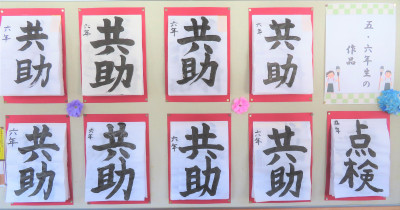 共助
六年
共助
六年
共助
六年
共助
六年
五・六年生の
作品
共助
六年
共助
六年
共助
六年
共助
六年
点検
五年